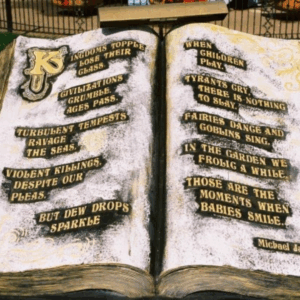 KINGDOMS TOPPLE
LOSE THEIR
CLASS.
CIVILIZATIONS
CRUMBLE,
AGES PASS.
TURBULENT TEMPESTS
RAVAGE
THE SEAS.
VIOLENT KILLINGS,
DESPITE OUR
PLEAS.
BUT DEW DROPS
SPARKLE
WHEN
CHILDREN
PLAY.
TYRANTS CRY
THERE IS NOTHING
TO SLAY.
FAIRIES DANCE AND
GOBLINS SING,
IN THE GARDEN WE
FROLIC A WHILE.
THOSE ARE THE
MOMENTS WHEN
BABIES SMILE..
Michael